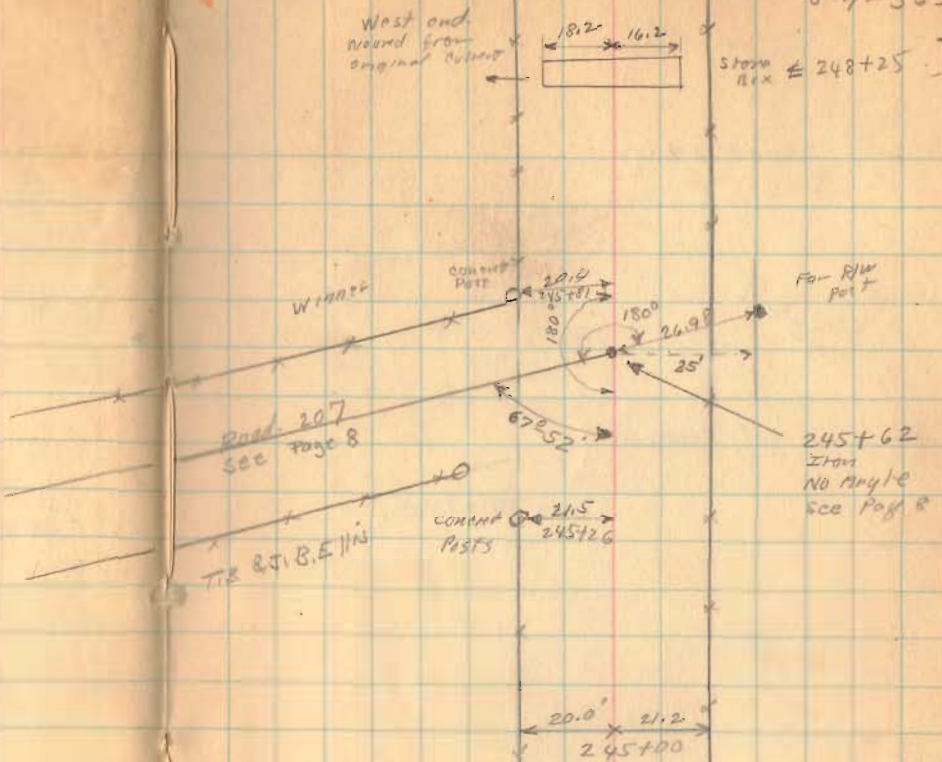 West end
moved from
original Culvert
18.2 16.2
Stone
Box ⅊ 248+25
Winner
concrt
Post
20.4
245+81
180°
180°
26.98
25'
For R/W
Post
Road 207
See Page 8
67°52'
245+62
Iron
No Angle
See Page 8
T.B & J.B. Ellis
concrt
Posts
21.5
245+26
20.0' 21.2
245+00